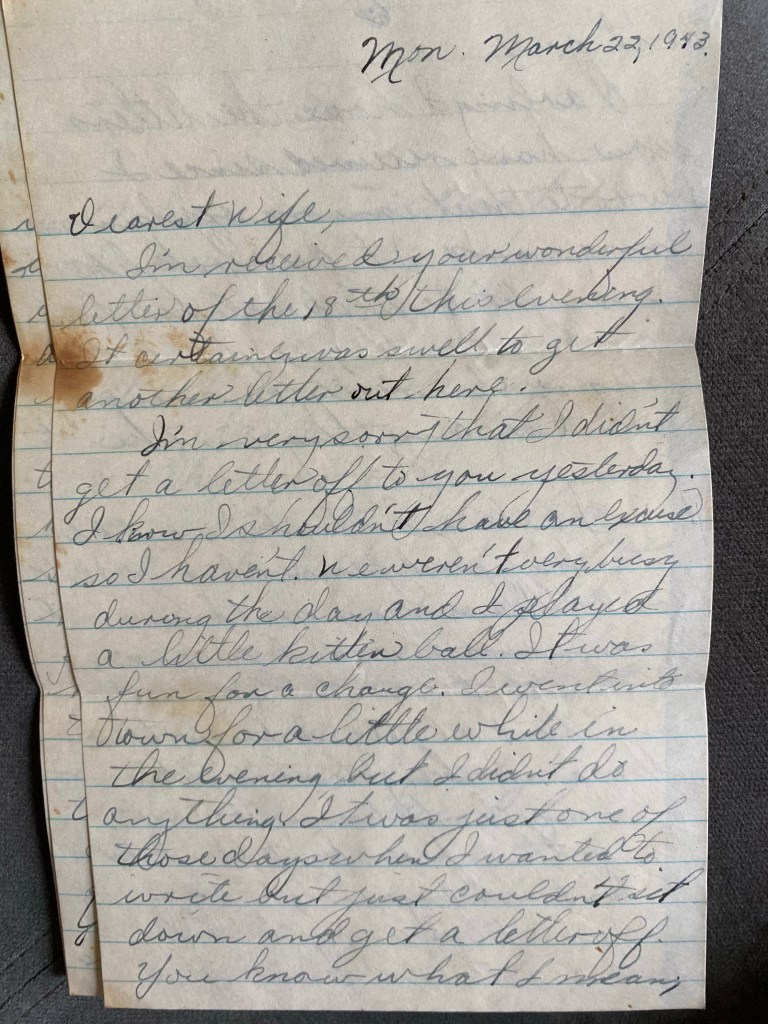 Mon. March 22, 1943.
Dearest Wife,
I'm received your wonderful
letter of the 18th this evening.
It certainly was swell to get
another letter out here.
I'm very sorry that I didn't
get a letter off to you yesterday.
I know I shouldn't have an excuse
so I haven't. We weren't very busy
during the day and I played
a little kitten ball. It was
fun for a change. I went into
town for a little while in
the evening but I didn't do
anything. It was just one of
those days when I wanted to
write but just couldn't sit
down and get a letter off.
You know what I mean,